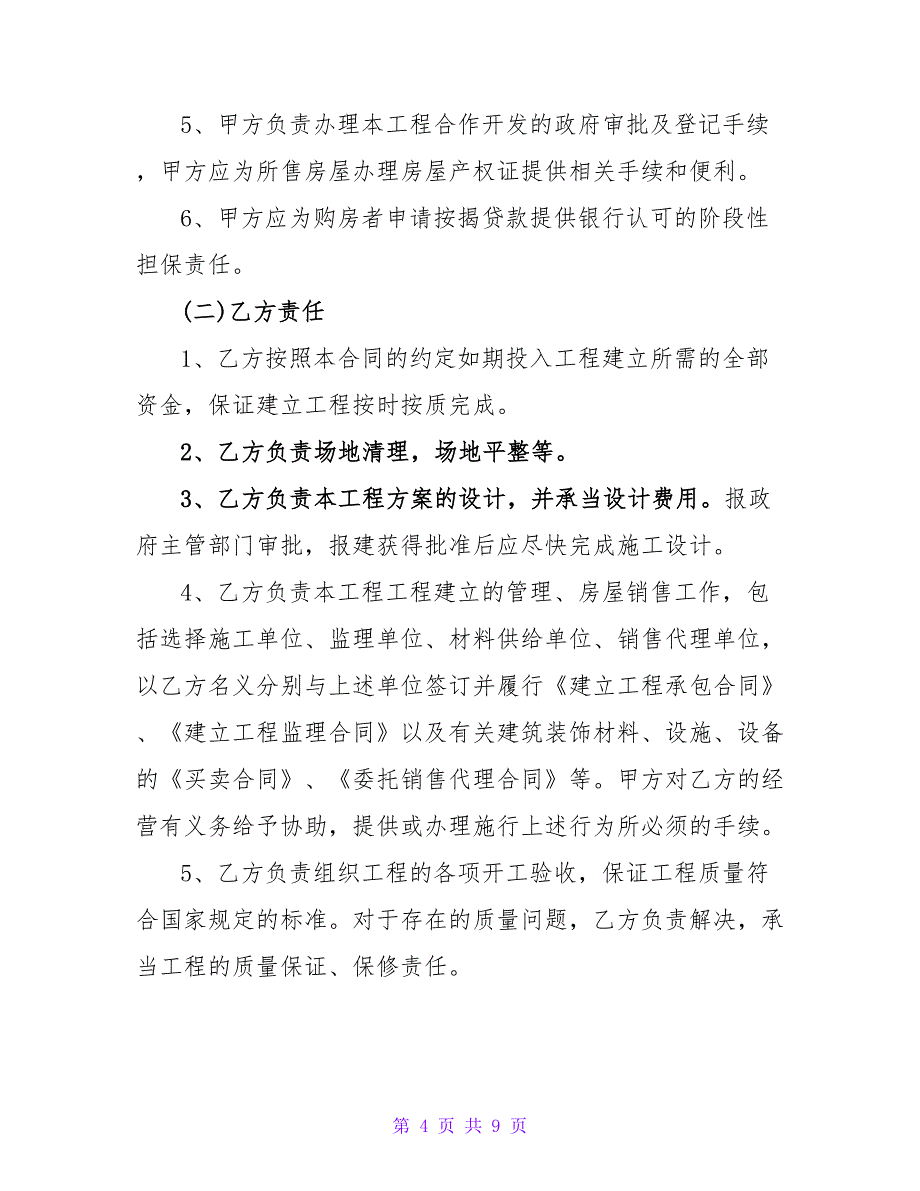 5、甲方负责办理本工程合作开发的政府审批及登记手续
，甲方应为所售房屋办理房屋产权证提供相关手续和便利。
6、甲方应为购房者申请按揭贷款提供银行认可的阶段性
担保责任。
(二)乙方责任
1、乙方按照本合同的约定如期投入工程建立所需的全部
资金，保证建立工程按时按质完成。
2、乙方负责场地清理，场地平整等。
3、乙方负责本工程方案的设计，并承当设计费用。报政
府主管部门审批，报建获得批准后应尽快完成施工设计。
4、乙方负责本工程工程建立的管理、房屋销售工作，包
括选择施工单位、监理单位、材料供给单位、销售代理单位，
以乙方名义分别与上述单位签订并履行《建立工程承包合同》
、《建立工程监理合同》以及有关建筑装饰材料、设施、设备
的《买卖合同》、《委托销售代理合同》等。甲方对乙方的经
营有义务给予协助，提供或办理施行上述行为所必须的手续。
5、乙方负责组织工程的各项开工验收，保证工程质量符
合国家规定的标准。对于存在的质量问题，乙方负责解决，承
当工程的质量保证、保修责任。
第 4 页 共 9 页